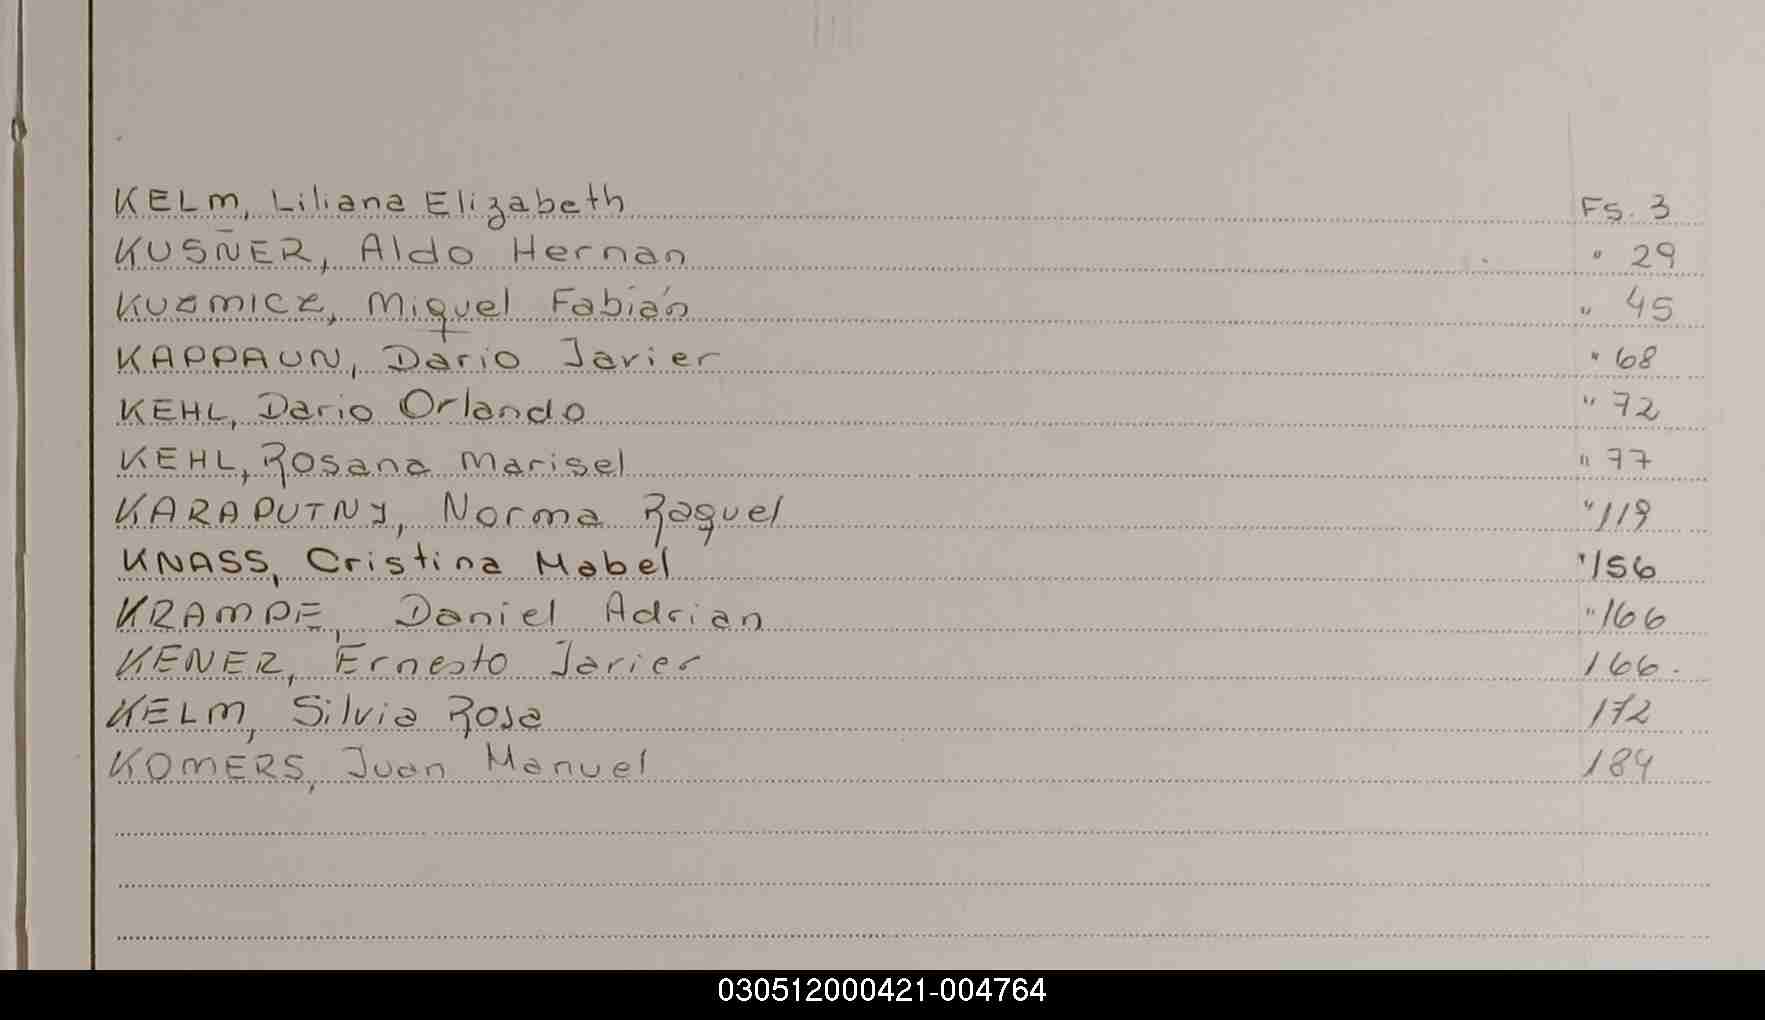 KELM, Liliana Elizabeth Fs. 3
KUSÑER, Aldo Hernan " 29
KUZMICZ, Miguel Fabián " 45
KAPPAUN, Dario Javier " 68
KEHL, Dario Orlando " 72
KEHL, Rosana Marisel " 77
KARAPUTNY, Norma Raquel " 119
KNASS, Cristina Mabel " 156
KRAMPE, Daniel Adrian " 166
KENER, Ernesto Javier 166.
KELM, Silvia Rosa 172
KOMERS, Juan Manuel 184
030512000421-004764